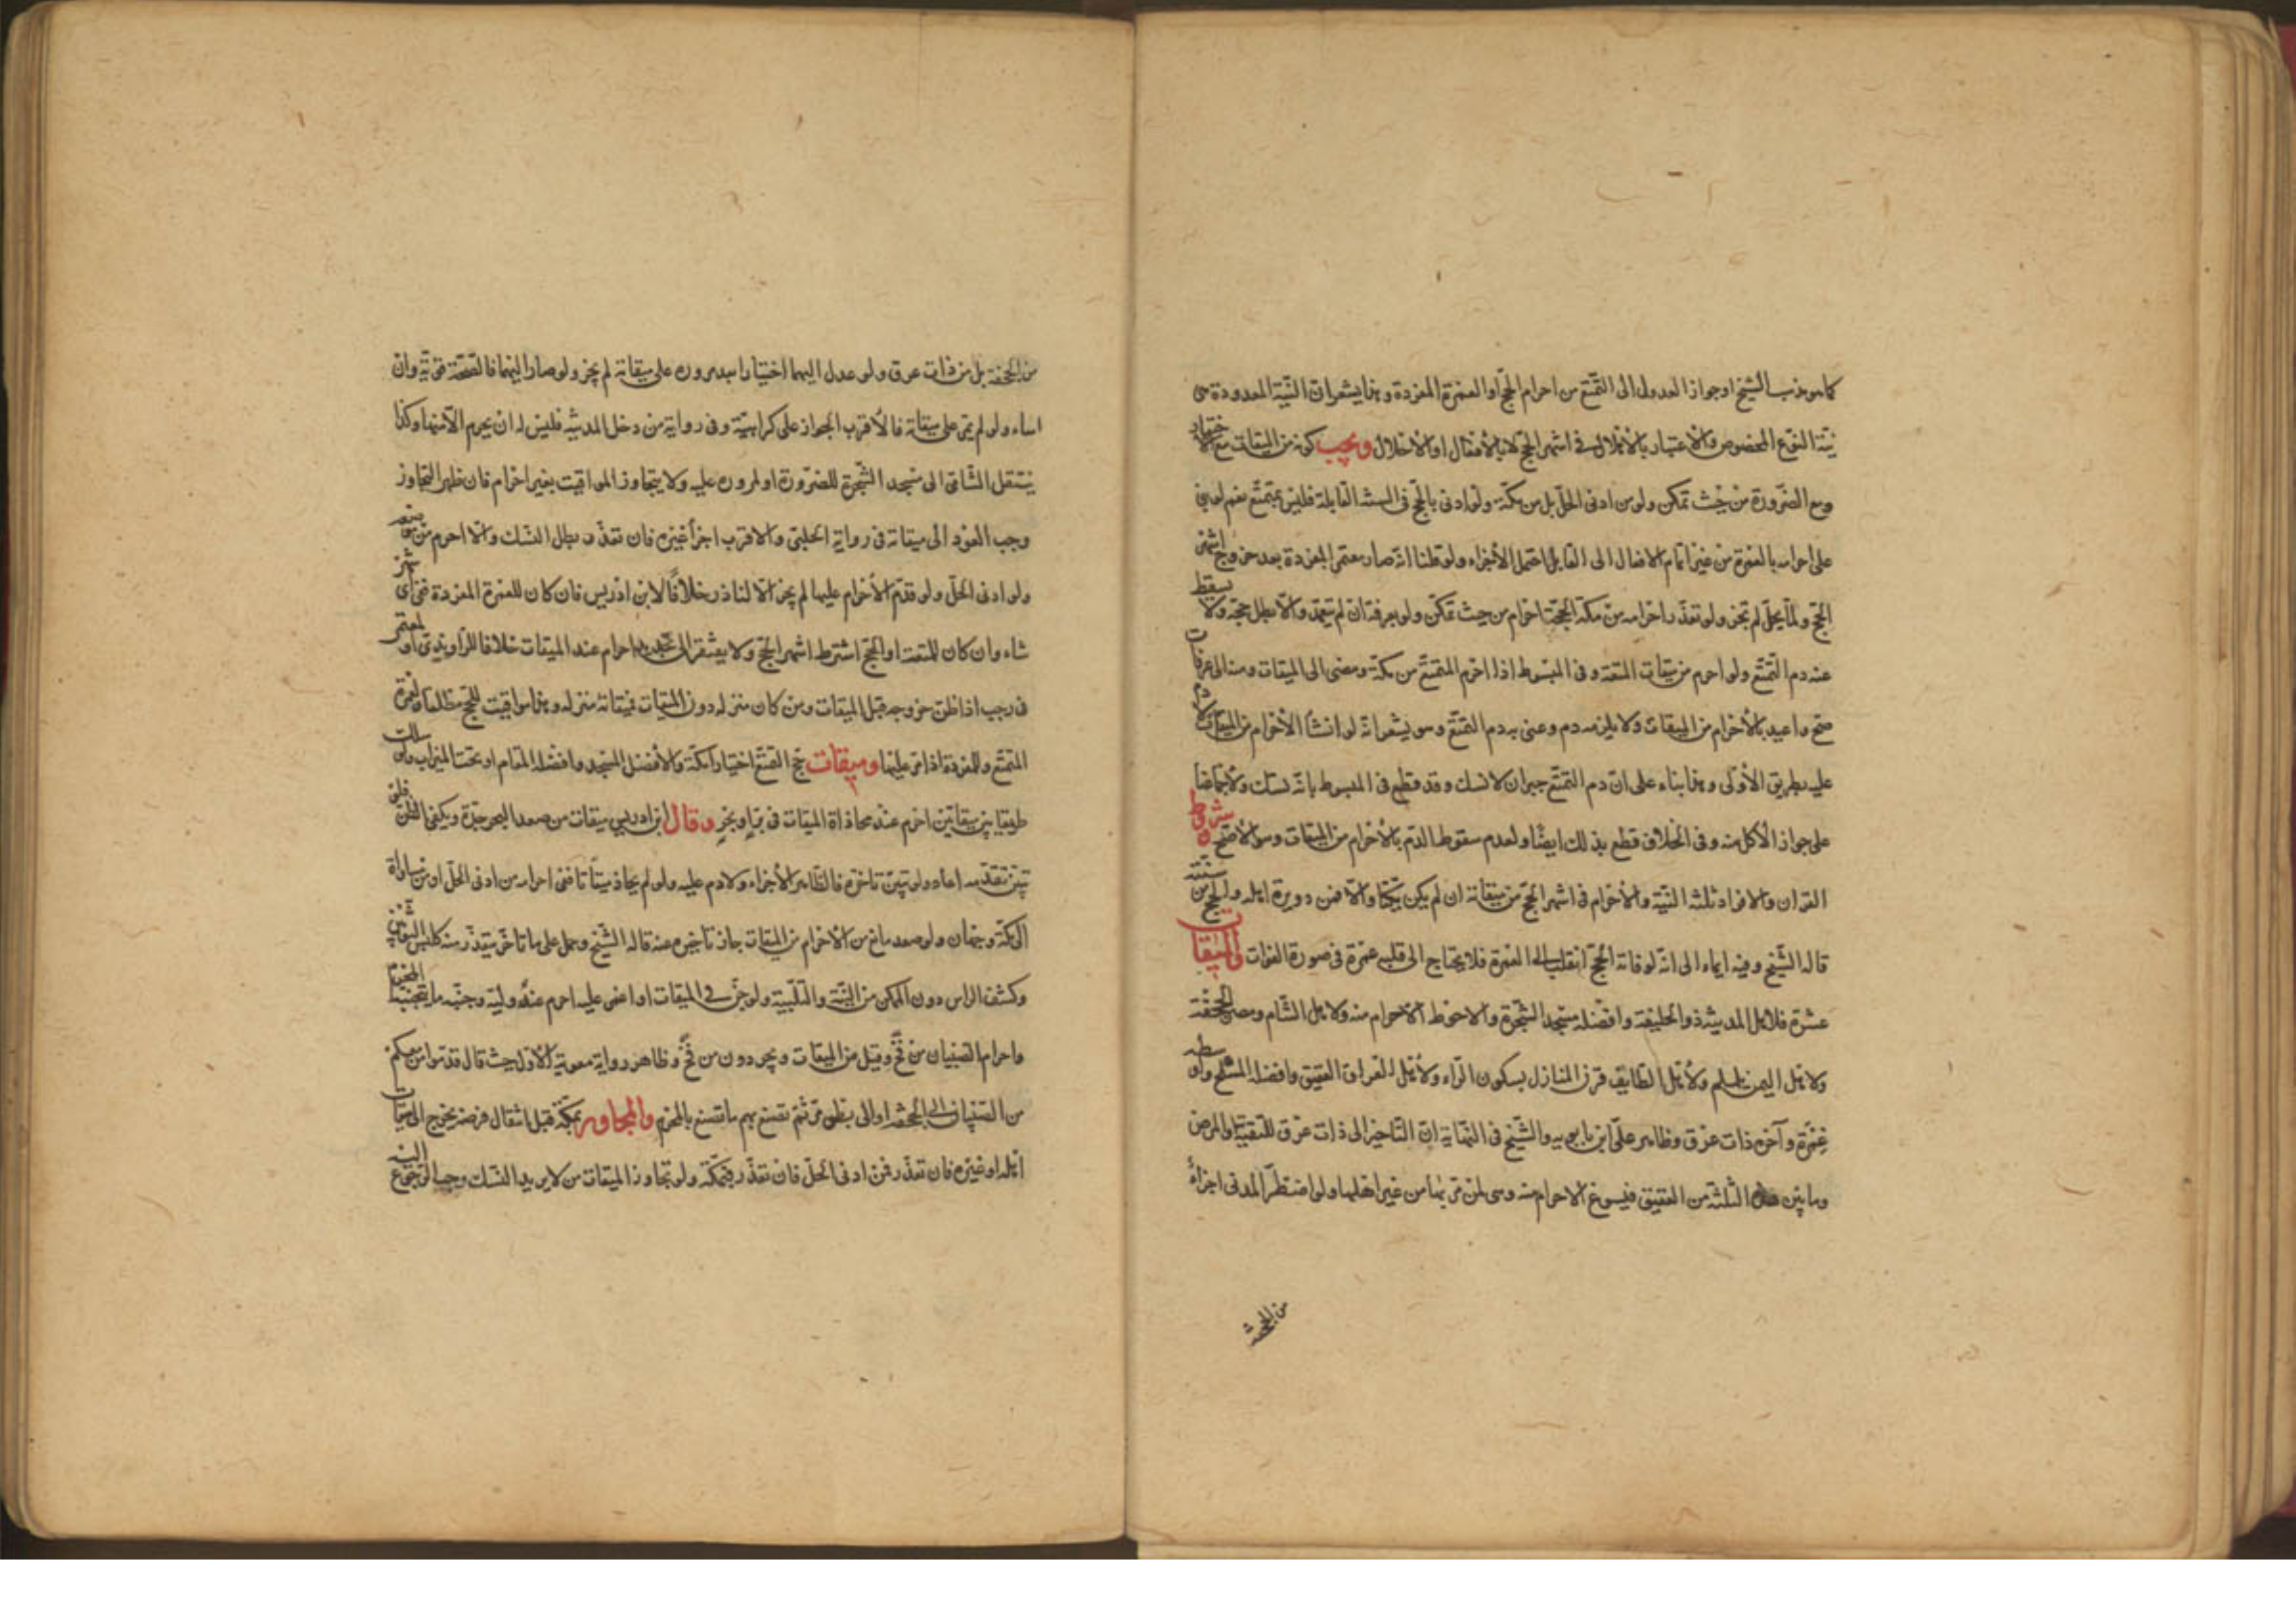 كما هو مذهب الشيخ او جواز العدول الى التمتع من احرام الحج او العمرة المفردة وهذا يشعر ان النية المعدودة هى
نية النوع المخصوص والاعتبار بالاهلال فى اشهر الحج لا بالافعال او الاحلال ويجب كونه من الميقات مع الاختيار
ومع الضرورة من حيث تمكن ولو من ادنى الحل بل من مكة ولو اتى بالحج فى السنة القابلة فليس بمتمتع نعم لو بقى
على احرامه بالعمرة من غير اتمام الافعال الى القابل احتمل الاجزاء ولو قلنا انه صار معتمرا بمفردة بعد خروج اشهر
الحج ولما يحل لم تجز ولو تعذر احرامه من مكة بحجه احرم من حيث تمكن ولو بعرفة ان لم يتعمد والا بطل حجه ولا يسقط
عنه دم التمتع ولو احرم من ميقات المتعة وفى المبسوط اذا احرم المتمتع من مكة ومضى الى الميقات ومنه الى عرفات
صح واعتد بالاحرام من الميقات ولا يلزمه دم وعنى به دم التمتع وهو يشعر انه لو انشأ الاحرام من الميقات لا دم
عليه بطريق الاولى وهذا بناء على ان دم التمتع جبران لا نسك وقد قطع فى المبسوط بانه نسك ولاجماعنا
على جواز الاكل منه وفى الخلاف قطع بذلك ايضا ولعدم سقوط الدم بالاحرام من الميقات وهو الاصح وشرط
القران والافراد ثلثة النية والاحرام فى اشهر الحج من ميقاته ان لم يكن مكيا والا فمن دويرة اهله والحج من سنته
قاله الشيخ وفيه ايماء الى انه لو فاته الحج انقلب الى العمرة فلا يحتاج الى قلبه عمرة فى صورة الفوات والميقات
عشرة فلاهل المدينة ذو الحليفة وافضله مسجد الشجرة والاحوط الاحرام منه ولاهل الشام ومصر الجحفة
ولاهل اليمن يلملم ولاهل الطايف قرن المنازل بسكون الراء ولاهل العراق العقيق وافضله المسلح واوسطه
غمرة وآخره ذات عرق وظاهر على ابن بابويه والشيخ فى النهاية ان التاخير الى ذات عرق للتقية والمرض
وما بين هذه الثلثة من العقيق فيسوغ الاحرام منه وهى لمن مر بها من غير اهلها ولو اضطر المدنى اجزأه
من الجحفة
من الجحفة بل من ذات عرق ولو عدل اليهما اختيارا بعد مروره على ميقاته لم يجز ولو صار اليهما فالصحة قوية وان
اساء ولو لم يمر على ميقاته فالاقرب الجواز على كراهية وفى رواية من دخل المدينة فليس له ان يحرم الا منها وكذا
ينتقل الشامى الى مسجد الشجرة للضرورة او لمروره عليه ولا يتجاوز المواقيت بغير احرام فان ظهر التجاوز
وجب العود الى ميقاته فى رواية الحلبى والاقرب اجزأ غيره فان تعذر بطل النسك والا احرم من موضعه
ولو ادنى الحل ولو قدم الاحرام عليها لم يجز الا لناذر خلافا لابن ادريس فان كان للعمرة المفردة ففى اى شهر
شاء وان كان للمتعة او الحج اشترط اشهر الحج ولا يفتقر الى تجديد احرام عند الميقات خلافا للراوندى او لمعتمر
فى رجب اذا ظن خروجه قبل الميقات ومن كان منزله دون الميقات فميقاته منزله وهذه مواقيت للحج مطلقا ولعمرة
التمتع وللمفردة اذا مر عليها وميقات حج التمتع اختيارا مكة والافضل المسجد وافضله المقام او تحت الميزاب ولو سلك
طريقا بين ميقاتين احرم عند محاذاة الميقات فى بر او بحر وقال ابن ادريس ميقات من صعد البحر جدة ويكفى الظن فلو
تبين تقدمه اعاد ولو تبين تاخره فالظاهر الاجزاء ولا دم عليه ولو لم يحاذ ميقاتا ففى احرامه من ادنى الحل او من مساواة
الى مكة وجهان ولو صعد مانع من الاحرام من الميقات جاز تاخيره عنه قاله الشيخ وحمل على ما تاخر متعذر منه كلبس الثوبين
وكشف الراس دون الممكن من النية والتلبية ولو جن فى الميقات او اغمى عليه احرم عنه وليه وجنبه ما يتجنبه المحرم
واحرام الصبيان من فخ وقيل من الميقات ويجردون من فخ وظاهر رواية معوية الاول حيث قال قدموا من معكم
من الصبيان الى الجحفة او الى بطن مر ثم تصنع بهم ما تصنع بالمحرم والمجاور بمكة قبل انتقال فرضه يخرج الى ميقات
اهله او غيره فان تعذر فمن ادنى الحل فان تعذر فبمكة ولو تجاوز الميقات من لا يريد النسك وجب الرجوع اليه